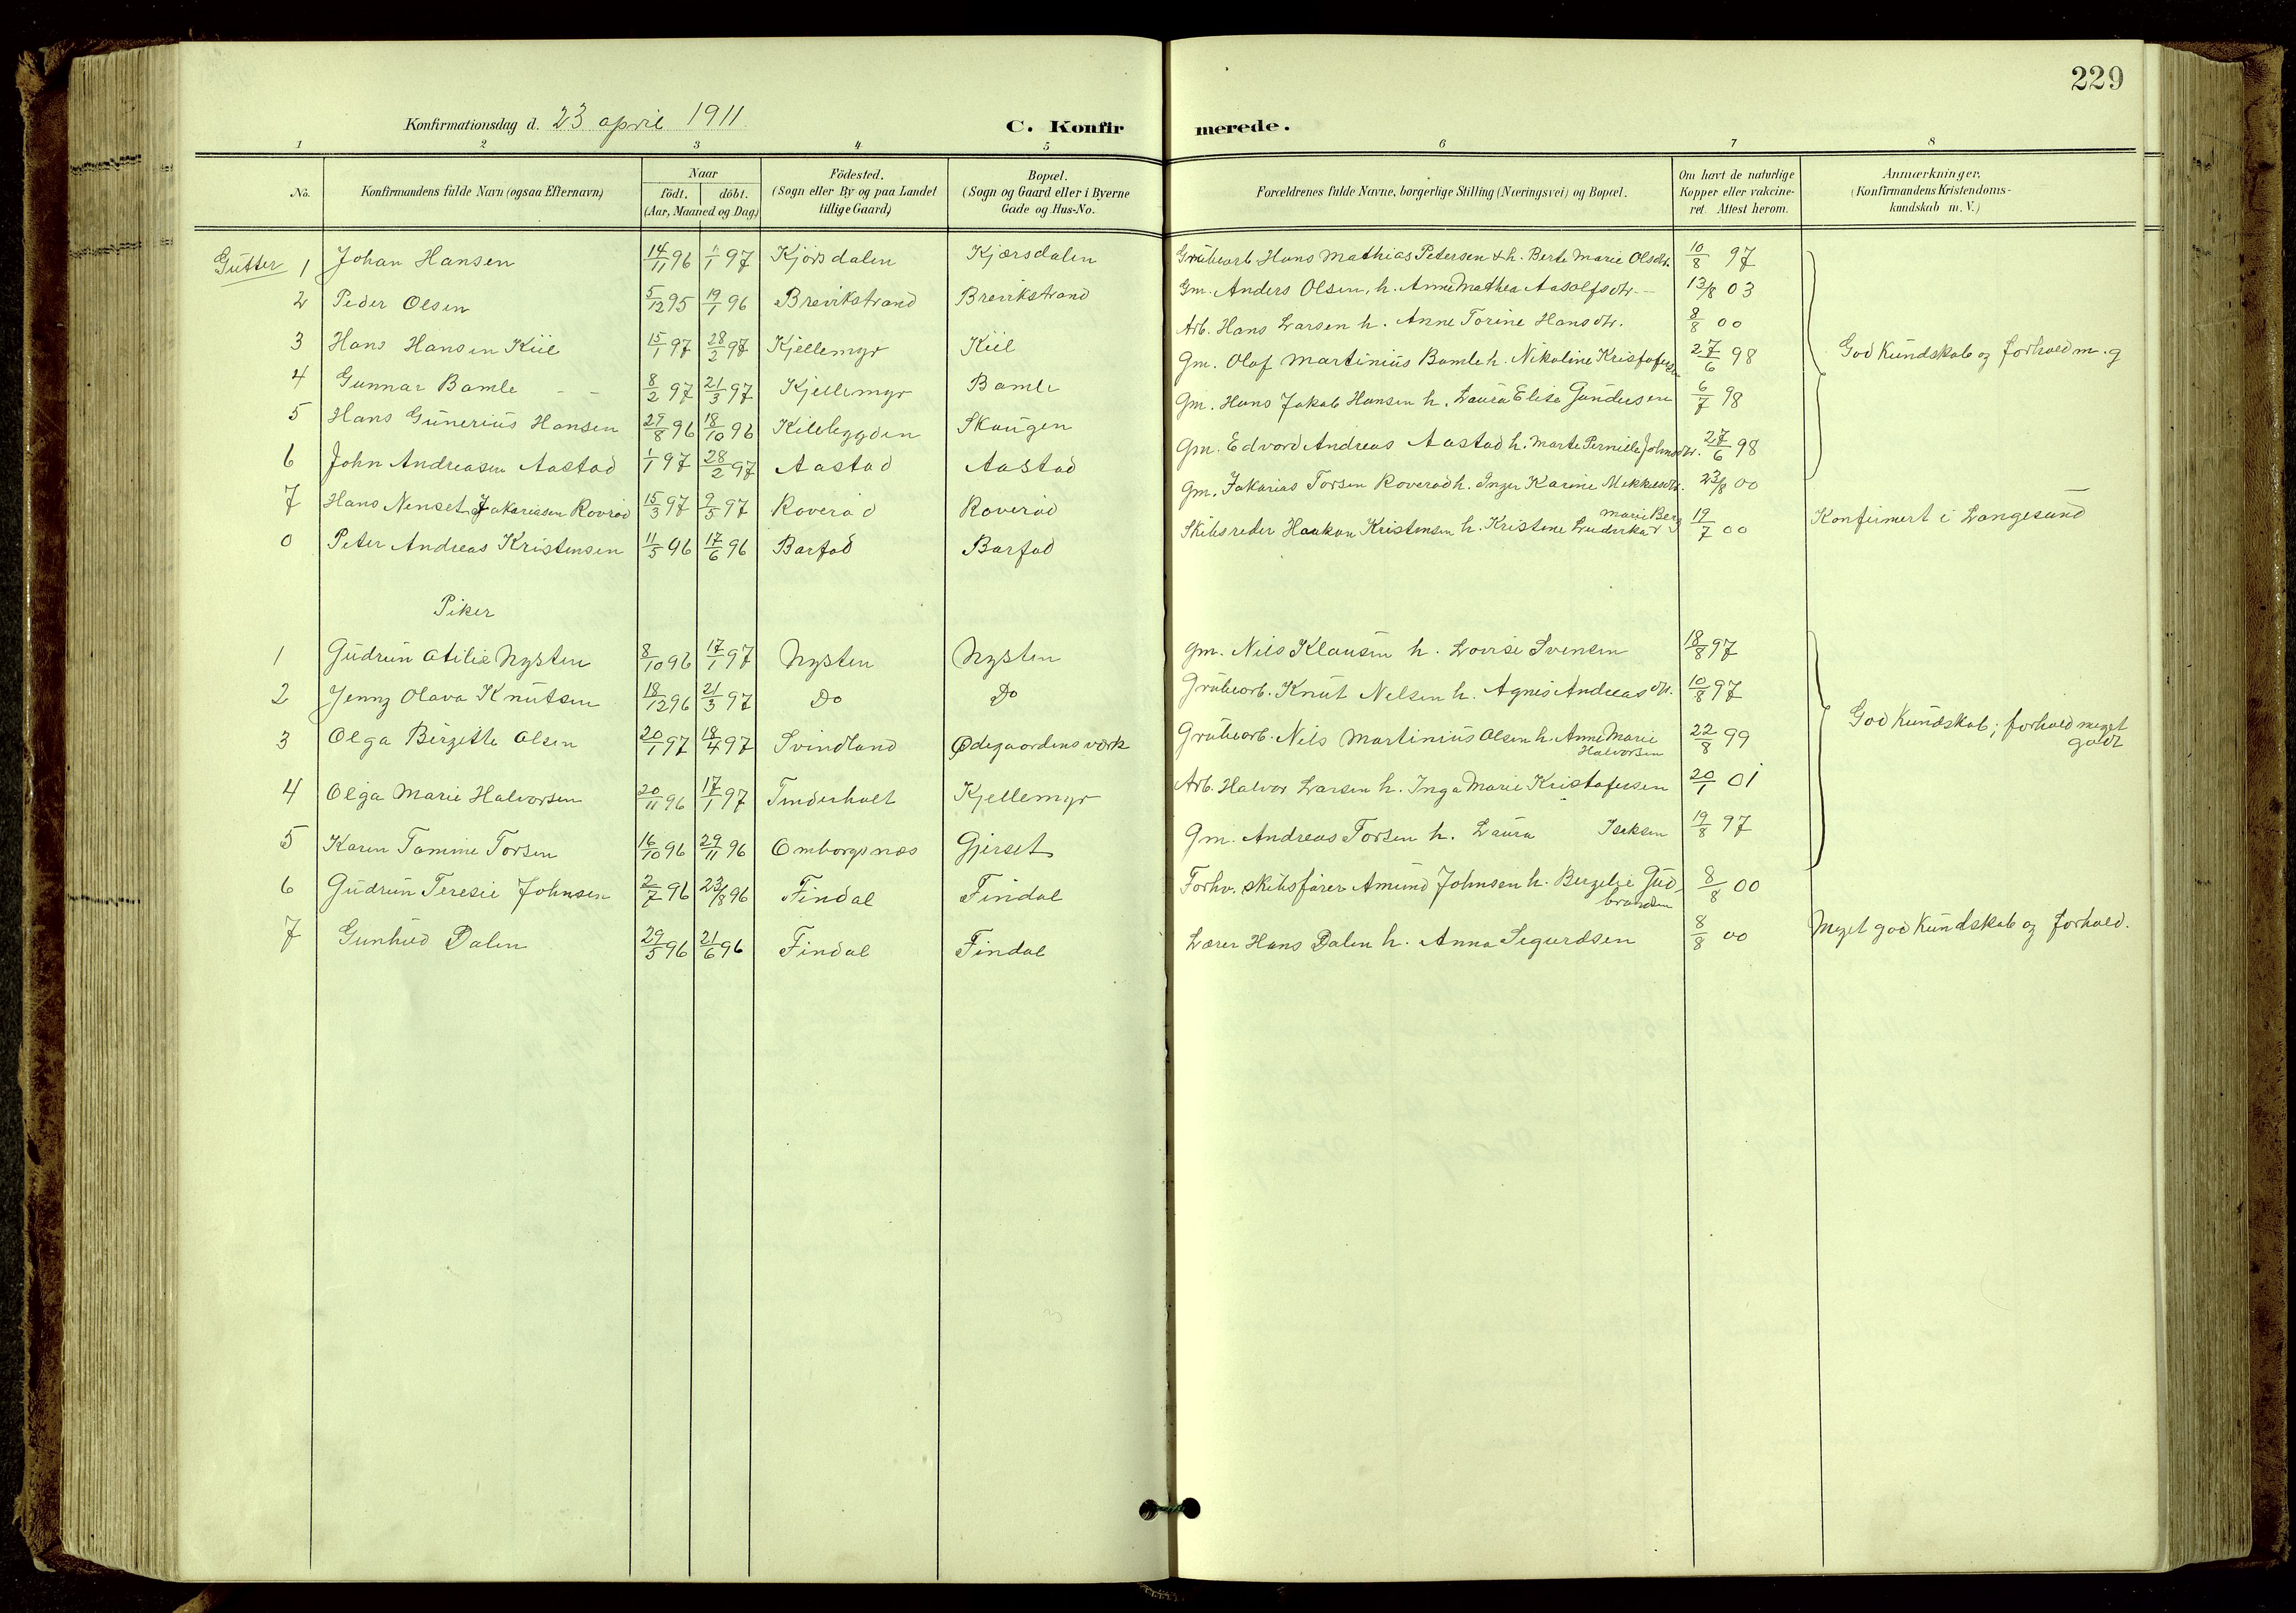 229
Konfirmationsdag d. 23 april 1911
C. Konfirmerede.
1 2 3 4 5 6 7 8
No. Konfirmandens fulde Navn (ogsaa Efternavn) Naar födt. döbt. (Aar, Maaned og Dag) Födested. (Sogn eller By og paa Landet tillige Gaard) Bopæl. (Sogn og Gaard eller i Byerne Gade og Hus-No. Forældrenes fulde Navne, borgerlige Stilling (Næringsvei) og Bopæl. Om havt de naturlige Kopper eller vakcineret. Attest herom. Anmærkninger. (Konfirmandens Kristendomskundskab m. V.)
Gutter 1 Johan Hansen 14/11 96 1/1 97 Kjörsdalen Kjærsdalen Grubearb Hans Mathias Petersen & h. Berte Marie Olsdtr. 10/8 97
2 Peder Olsen 5/12 95 19/1 96 Brevikstrand Brevikstrand Gm. Anders Olsen, h. Anne Mathea Aasolfsdtr. 13/8 03
3 Hans Hansen Kiil 15/1 97 28/2 97 Kjellemyr Kiil Arb. Hans Larsen h. Anne Torine Hansdtr. 8/8 00
4 Gunnar Bamle 8/2 97 21/3 97 Kjellemyr Bamle Gm. Olaf Martinius Bamle h. Nikoline Kristofersen 27/6 98
God Kundskab og forhold m. g
5 Hans Gunerius Hansen 29/8 96 18/10 96 Kilebygden Skaugen Gm. Hans Jakob Hansen h. Laura Elise Gundersen 6/7 98
6 John Andreasen Aastad 1/1 97 28/2 97 Aastad Aastad Gm. Edvard Andreas Aastad h. Marte Pernille Johnsdtr. 27/6 98
7 Hans Nenset Jakariasen Roverød 15/3 97 9/5 97 Roverød Roverød Gm. Jakarias Torsen Roverød h. Inger Karine Mikkelsdtr. 23/8 00
0 Peter Andreas Kristensen 11/5 96 17/6 96 Barfod Barfod Skibsreder Haakon Kristensen h. Kristine Ludvika Marie Berg 19/7 00 Konfirmert i Langesund
Piker
1 Gudrun Otilie Nysten 8/10 96 17/1 97 Nysten Nysten gm. Nils Klausen h. Lovise Svensen 18/8 97
2 Jenny Olava Knutsen 18/12 96 21/3 97 Do Do Grubearb. Knut Nelsen h. Agnes Andreasdtr. 10/8 97
3 Olga Birgitte Olsen 20/1 97 18/4 97 Svindland Ødegaardens værk Grubearb. Nils Martinius Olsen h. Anne Marie Halvorsen 22/8 99
God Kundskab; forhold meget godt
4 Olga Marie Halvorsen 20/11 96 17/1 97 Tinderholt Kjellemyr Arb. Halvor Larsen h. Inga Marie Kristofersen 20/1 01
5 Karen Tomine Torsen 16/10 96 29/11 96 Omborgsnæs Gjerset Gm. Andreas Torsen h. Laura Iseksen 19/8 97
6 Gudrun Teresie Johnsen 2/7 96 23/8 96 Findal Findal Forhv. skibsfører Amund Johnsen h. Bergelie Gudbrandsen 8/8 00
7 Gunhild Dalen 29/5 96 21/6 96 Findal Findal Lærer Hans Dalen h. Anna Sigurdsen 8/8 00 Meget god Kundskab og forhold.